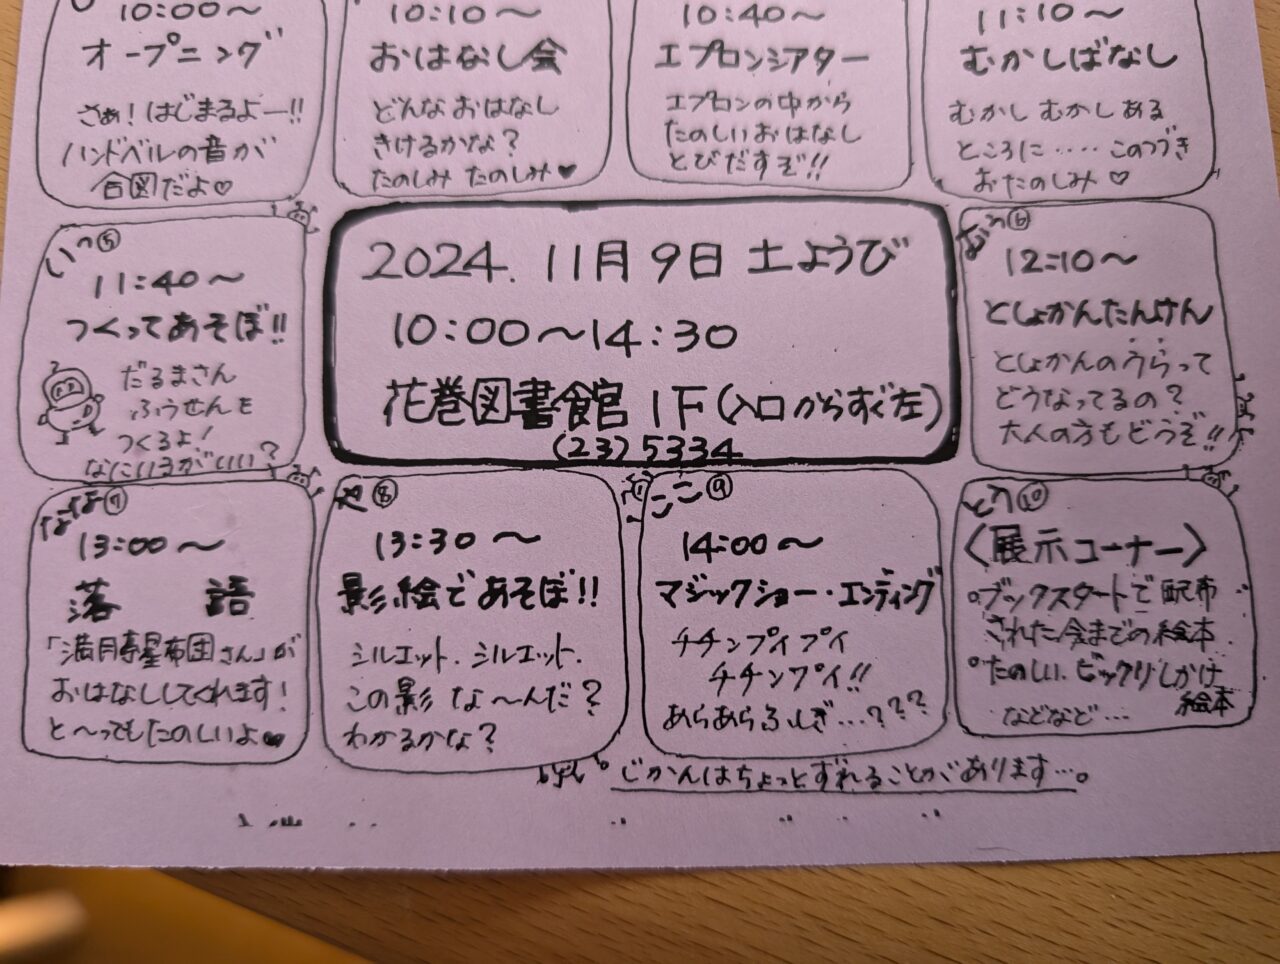 10:00〜
オープニング
さぁ!はじまるよー!!
ハンドベルの音が
合図だよ♡
10:10〜
おはなし会
どんなおはなし
きけるかな?
たのしみ たのしみ♥
10:40〜
エプロンシアター
エプロンの中から
たのしいおはなし
とびだすぞ!!
11:10〜
むかしばなし
むかし むかし ある
ところに‥‥‥このつづき
おたのしみ♡
いつ⑤
11:40〜
つくってあそぼ!!
だるまさん
ふうせんを
つくるよ!
なにいろがいい?
2024. 11月9日 土ようび
10:00〜14:30
花巻図書館 1F(入口からすぐ左)
(23)5334
むっ⑥
12:10〜
としょかんたんけん
としょかんのうらって
どうなってるの?
大人の方もどうぞ!!
なな⑦
13:00〜
落語
「満月亭星布団さん」が
おはなししてくれます!
と〜ってもたのしいよ♥
や⑧
13:30〜
影絵であそぼ!!
シルエット.シルエット.
この影 な〜んだ?
わかるかな?
ここ⑨
14:00〜
マジックショー・エンディング
チチンプイプイ
チチンプイ!!
あらあらふしぎ…???
とう⑩
〈展示コーナー〉
。ブックスタートで配布
された今までの絵本
。たのしい.ビックリしかけ
絵本
などなど…
じかんはちょっとずれることがあります…。